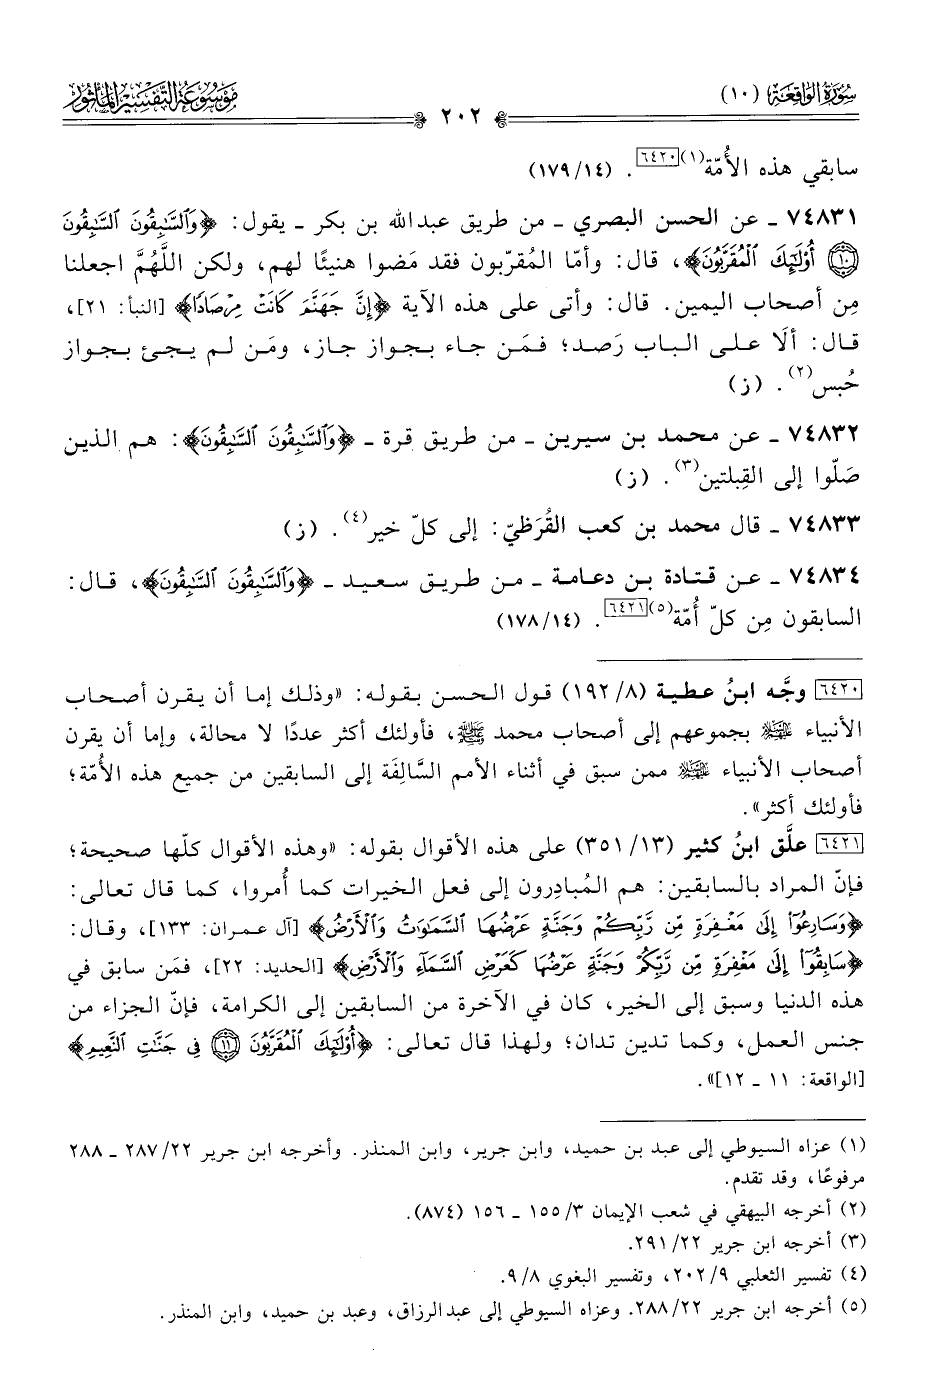 سورة الواقعة (١٠)
موسوعة التفسير المأثور
٢٠٢
سابقي هذه الأُمّة(١)[٦٤٢٠]. (١٧٩/١٤)
٧٤٨٣١ ـ عن الحسن البصري ـ من طريق عبدالله بن بكر ـ يقول: ﴿وَٱلسَّٰبِقُونَ ٱلسَّٰبِقُونَ
۝١٠ أُوْلَٰٓئِكَ ٱلْمُقَرَّبُونَ﴾، قال: وأمّا المُقربّون فقد مَضوا هنيئًا لهم، ولكن اللَّهُمَّ اجعلنا
مِن أصحاب اليمين. قال: وأتى على هذه الآية ﴿إِنَّ جَهَنَّمَ كَانَتْ مِرْصَادًا﴾ [النبأ: ٢١]،
قال: ألَا على الباب رَصد؛ فمَن جاء بجواز جاز، ومَن لم يجئ بجواز
حُبس(٢). (ز)
٧٤٨٣٢ ـ عن محمد بن سيرين ـ من طريق قرة ـ ﴿وَٱلسَّٰبِقُونَ ٱلسَّٰبِقُونَ﴾: هم الذين
صَلّوا إلى القِبلتين(٣). (ز)
٧٤٨٣٣ ـ قال محمد بن كعب القُرَظيّ: إلى كلّ خير(٤). (ز)
٧٤٨٣٤ ـ عن قتادة بن دعامة ـ من طريق سعيد ـ ﴿وَٱلسَّٰبِقُونَ ٱلسَّٰبِقُونَ﴾، قال:
السابقون مِن كلّ أُمّة(٥)[٦٤٢١]. (١٧٨/١٤)
[٦٤٢٠] وجَّه ابنُ عطية (١٩٢/٨) قول الحسن بقوله: «وذلك إما أن يقرن أصحاب
الأنبياء ﷺ بجموعهم إلى أصحاب محمد ﷺ، فأولئك أكثر عددًا لا محالة، وإما أن يقرن
أصحاب الأنبياء ﷺ ممن سبق في أثناء الأمم السَّالِفَة إلى السابقين من جميع هذه الأُمّة؛
فأولئك أكثر».
[٦٤٢١] علَّق ابنُ كثير (٣٥١/١٣) على هذه الأقوال بقوله: «وهذه الأقوال كلّها صحيحة؛
فإنّ المراد بالسابقين: هم المُبادِرون إلى فعل الخيرات كما أُمروا، كما قال تعالى:
﴿وَسَارِعُوٓاْ إِلَىٰ مَغْفِرَةٍ مِّن رَّبِّكُمْ وَجَنَّةٍ عَرْضُهَا ٱلسَّمَٰوَٰتُ وَٱلْأَرْضُ﴾ [آل عمران: ١٣٣]، وقال:
﴿سَابِقُوٓاْ إِلَىٰ مَغْفِرَةٍ مِّن رَّبِّكُمْ وَجَنَّةٍ عَرْضُهَا كَعَرْضِ ٱلسَّمَآءِ وَٱلْأَرْضِ﴾ [الحديد: ٢٢]، فمَن سابق في
هذه الدنيا وسبق إلى الخير، كان في الآخرة من السابقين إلى الكرامة، فإنّ الجزاء من
جنس العمل، وكما تدين تدان؛ ولهذا قال تعالى: ﴿أُوْلَٰٓئِكَ ٱلْمُقَرَّبُونَ ۝١١ فِى جَنَّٰتِ ٱلنَّعِيمِ﴾
[الواقعة: ١١ ـ ١٢]».
(١) عزاه السيوطي إلى عبد بن حميد، وابن جرير، وابن المنذر. وأخرجه ابن جرير ٢٨٧/٢٢ ـ ٢٨٨
مرفوعًا، وقد تقدم.
(٢) أخرجه البيهقي في شعب الإيمان ١٥٥/٣ ـ ١٥٦ (٨٧٤).
(٣) أخرجه ابن جرير ٢٩١/٢٢.
(٤) تفسير الثعلبي ٢٠٢/٩، وتفسير البغوي ٩/٨.
(٥) أخرجه ابن جرير ٢٨٨/٢٢. وعزاه السيوطي إلى عبدالرزاق، وعبد بن حميد، وابن المنذر.